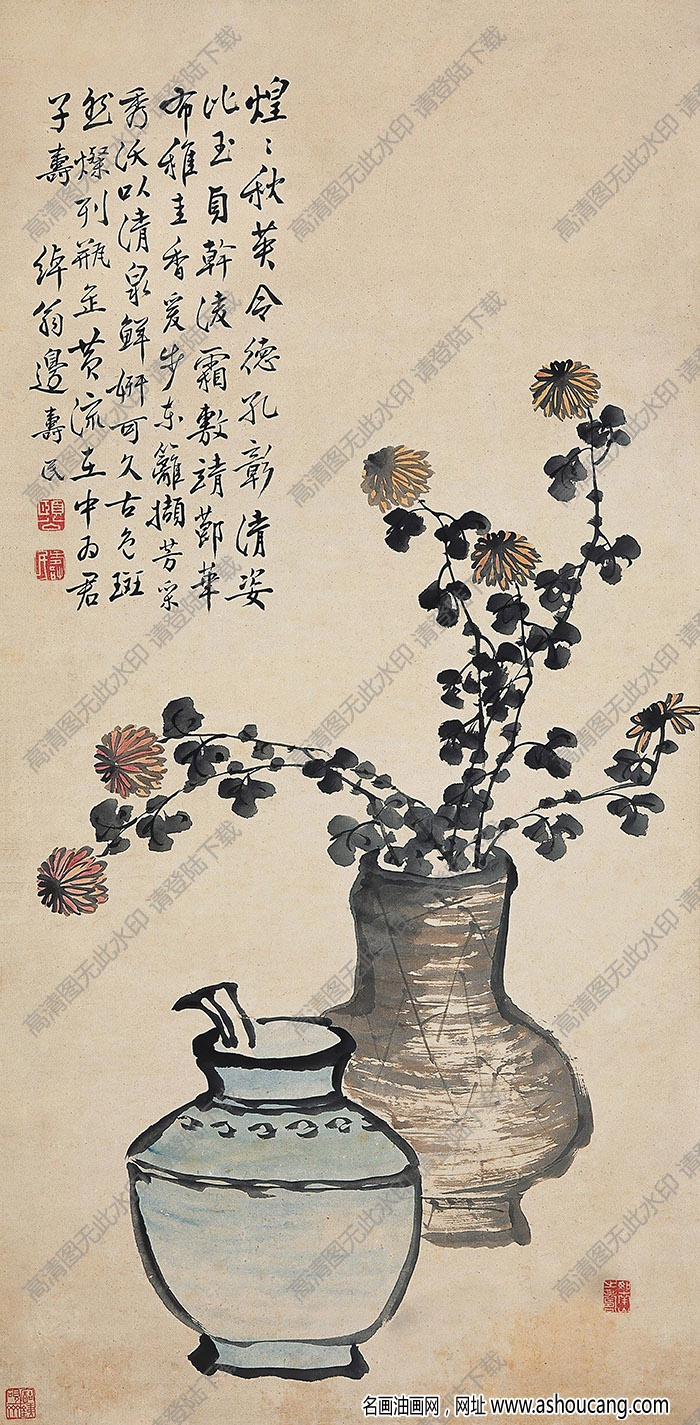 煌〻秋英令德孔彰清姿
比玉貞幹淩霜敷靖節華
布稚圭香爰步東籬擷芳采
秀沃以清泉鮮妍可久古色斑
然燦列瓶缶黃流在中为君
子壽 綽翁邊壽民
高清图无此水印 请登陆下载
名画油画网，网址 www.ashoucang.com